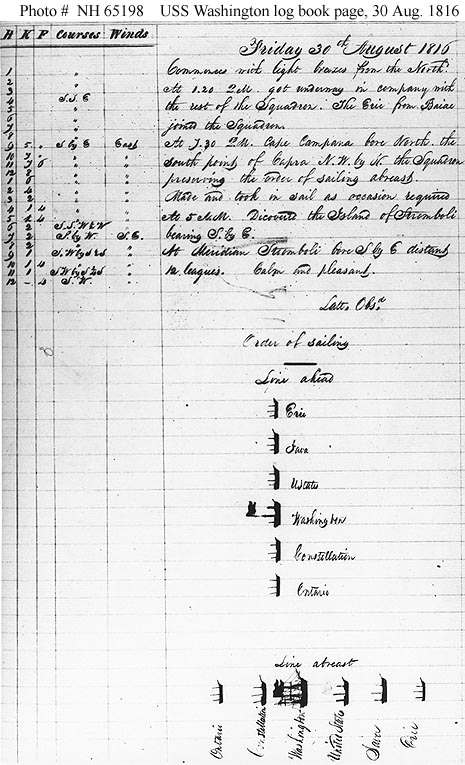 Photo # NH 65198 USS Washington log book page, 30 Aug. 1816
H K F Courses Winds
Friday 30th August 1816
1 " Commences with light breezes from the North.
2 "
3 " At 1.20 P.M. got underway in company with
4 S.S.E " the rest of the Squadron. The Erie from Baiae
5 "
6 " joined the Squadron.
7 "
8 "
9 5 " S by E East At 7.30 P.M. Cape Campana bore North, the
10 7 " "
11 7 6 " " south point of Capra N.W. by N. the Squadron
12 8 " " "
1 6 " " preserving the order of sailing abreast.
2 4 " "
3 2 " " Made and took in sail as occasion requires
4 1 4 " "
5 4 " At 5 A.M. Dicovered the Island of Stromboli
6 2 " S.S.W & W "
7 2 " S. by W. S.E. bearing S. by E.
8 2 " "
9 1 " S.W by S & S " At Meridian Stromboli bore S by E distant
10 1 4 " "
11 1 " S W by S & S " 12 leagues. Calm and pleasant.
12 - 4 S.W. "
Latt. Obsd
Order of sailing
Line ahead
Erie
Java
UStates
Washington
Constellation
Ontario
Line abreast
Ontario
Constellation
Washington
United States
Java
Erie